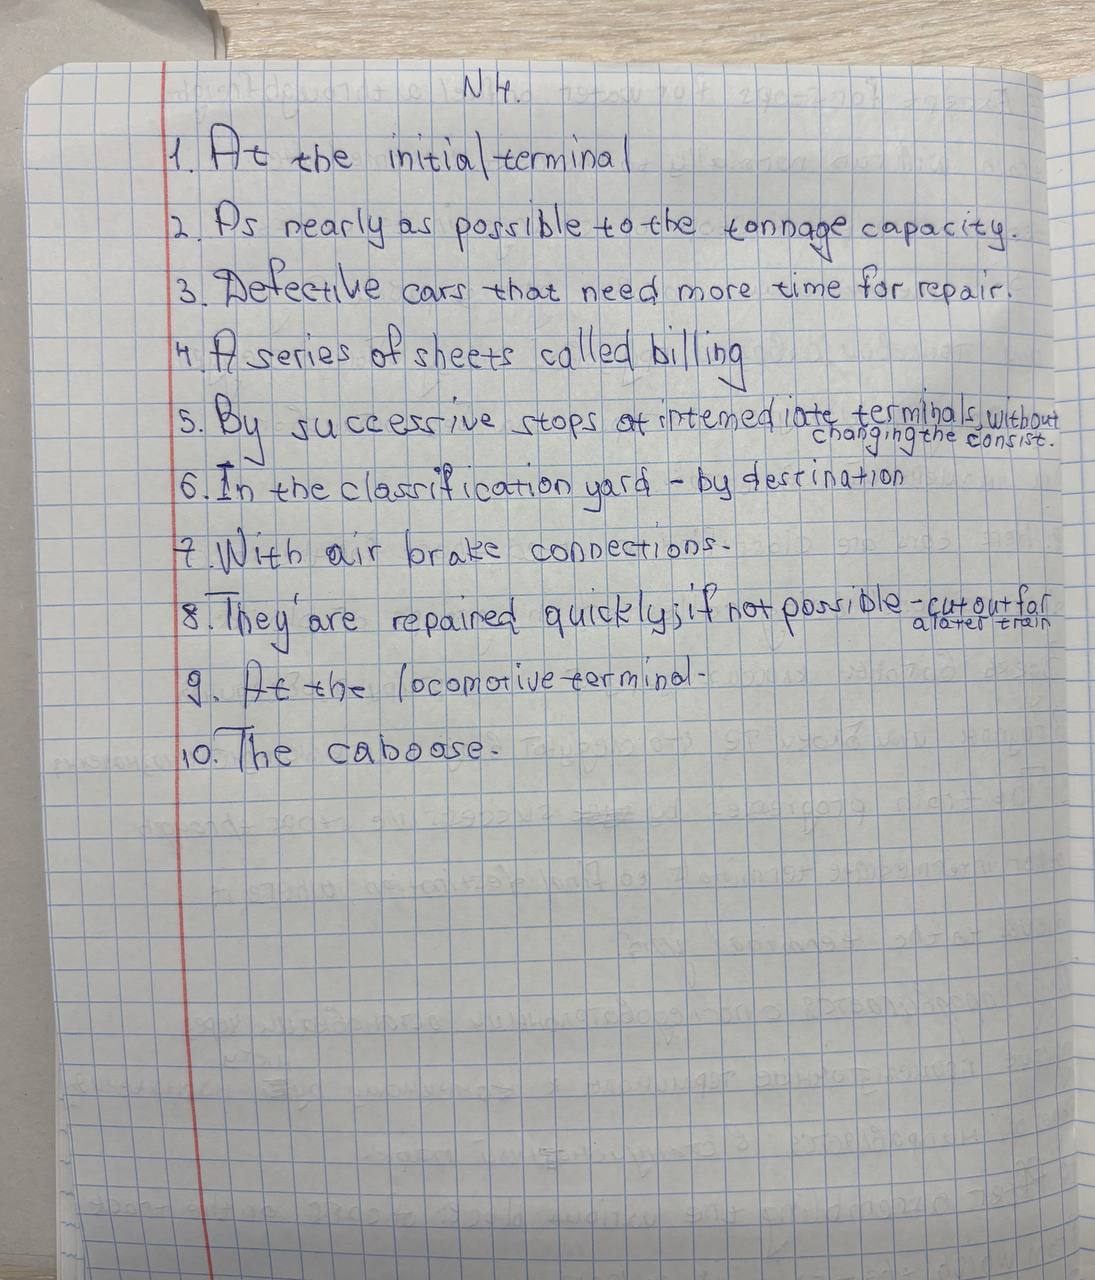 N4.
1. At the initial terminal
2. As nearly as possible to the tonnage capacity.
3. Defective cars that need more time for repair.
4. A series of sheets called billing
5. By successive stops at intemediate terminals, without
changing the consist.
6. In the classification yard - by destination
7. With air brake connections.
8. They are repained quickly; if not possible - cut out far
a later train
9. At the locomotive terminal.
10. The caboose.